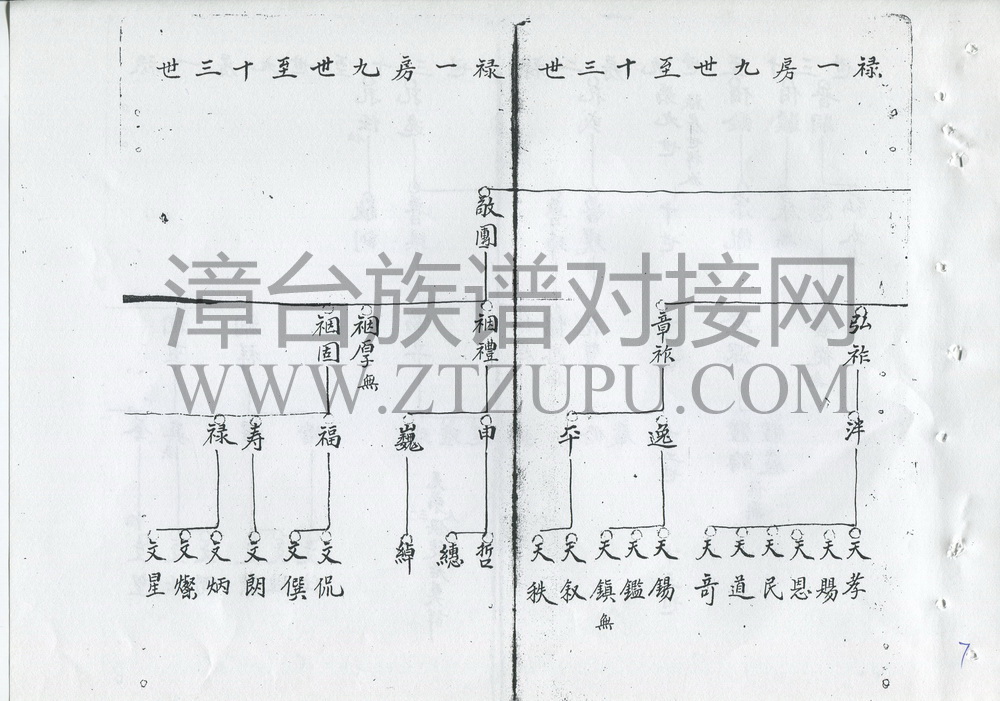 禄一房九世至十三世
弘祚
章祚
泮
逸
平
天孝
天賜
天恩
天民
天道
天奇
天錫
天鑑
天鎮
無
天叙
天秩
禄一房九世至十三世
敬團
祻禮
祻厚
無
祻固
申
巍
福
寿
禄
哲
繐
綽
文侃
文僎
文朗
文炳
文燦
文星
漳台族谱对接网
WWW.ZTZUPU.COM
7